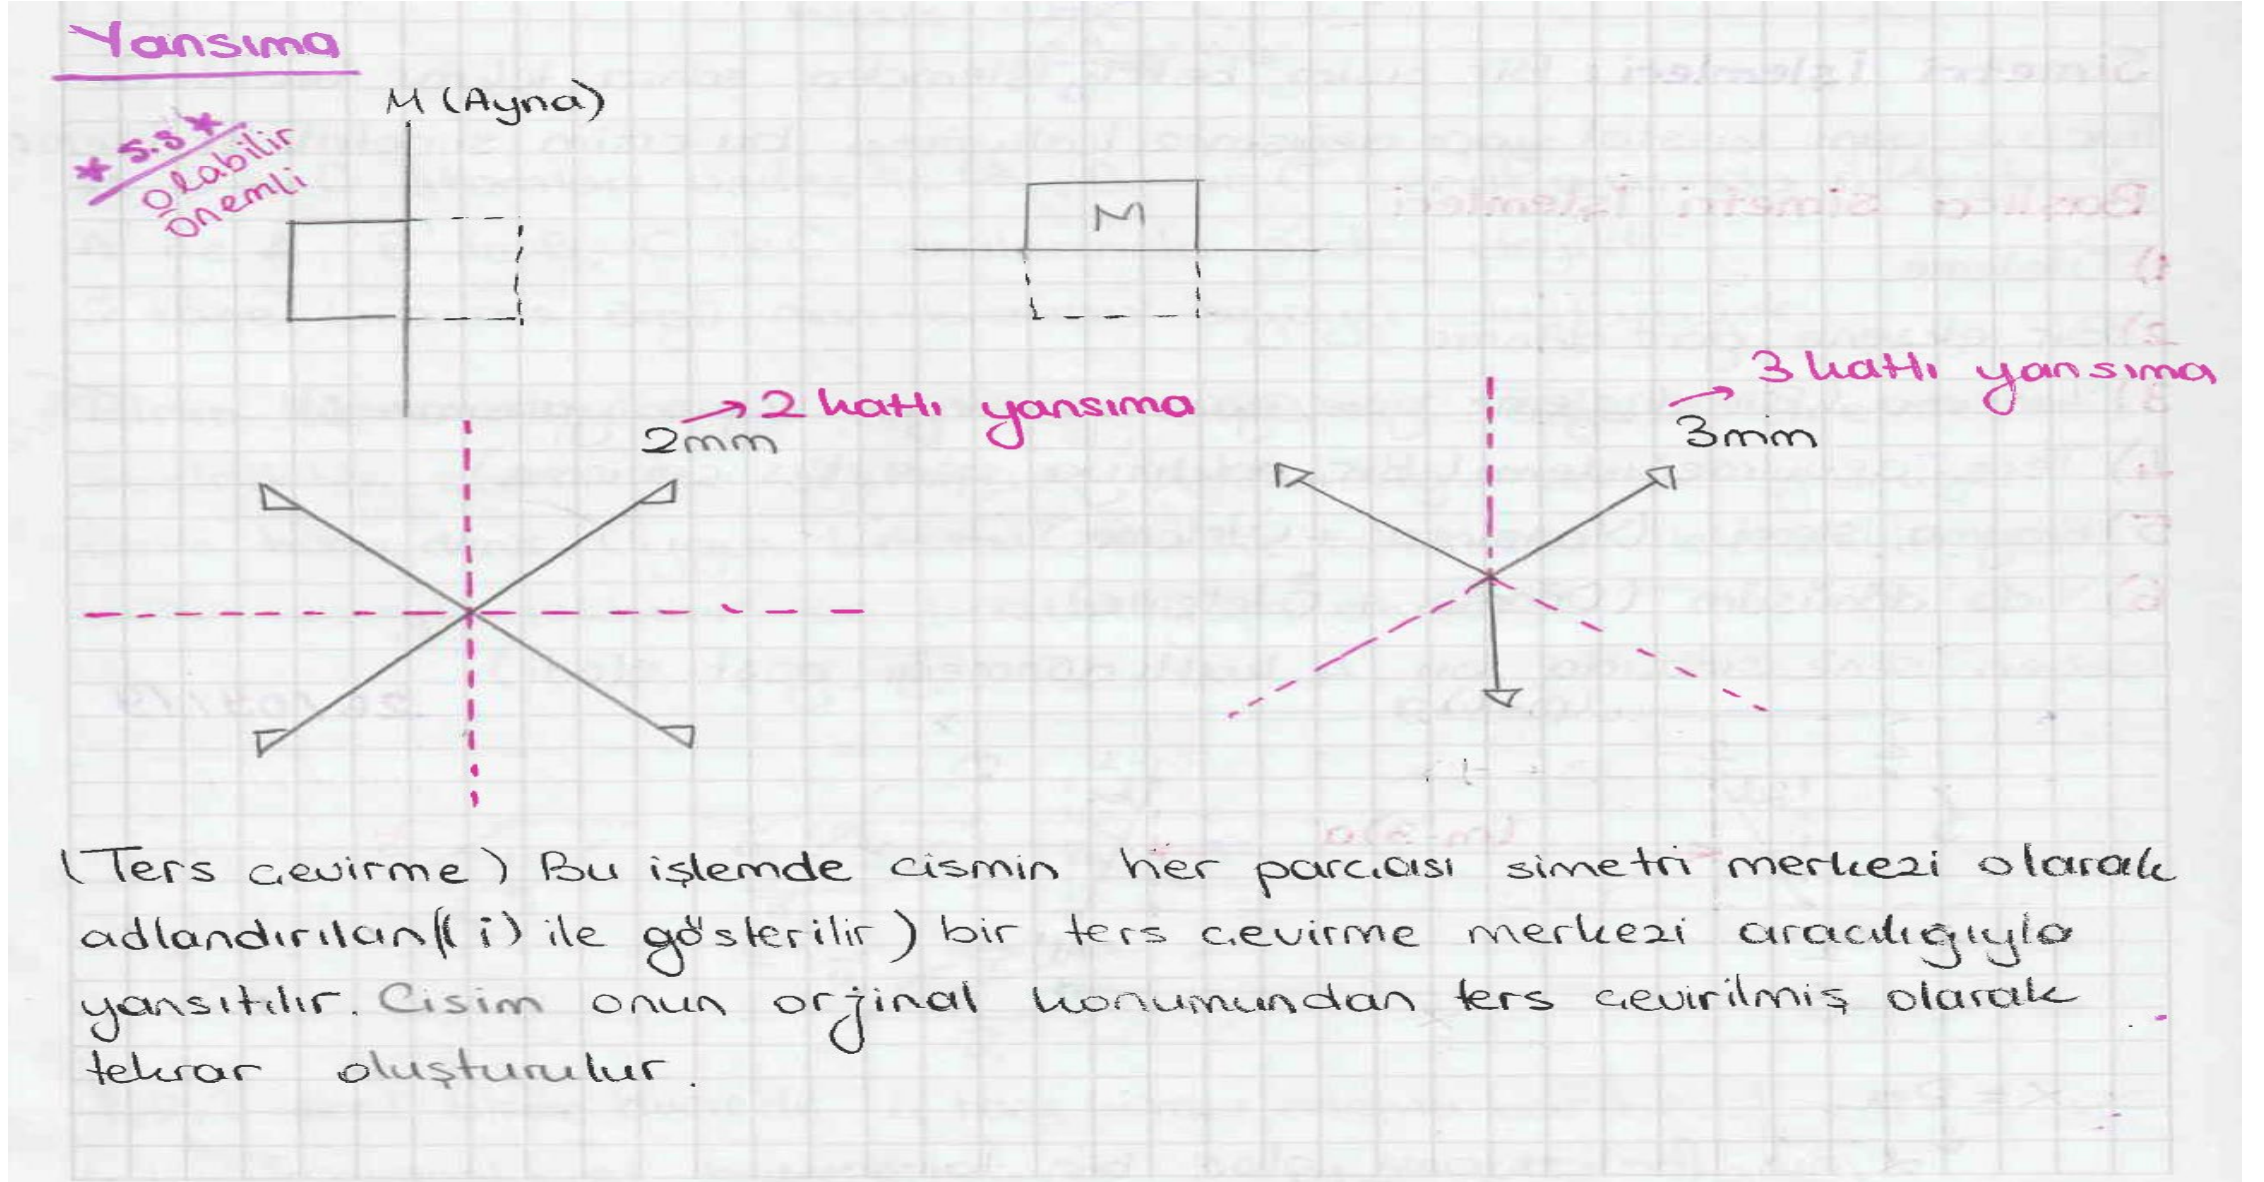 Yansıma
M (Ayna)
* S.S *
olabilir
önemli
M
→ 2 katlı yansıma
2mm
→ 3 katlı yansıma
3mm
(Ters çevirme) Bu işlemde cismin her parçası simetri merkezi olarak
adlandırılan ((i) ile gösterilir) bir ters çevirme merkezi aracılığıyla
yansıtılır. Cisim onun orjinal konumundan ters çevirilmiş olarak
tekrar oluşturulur.